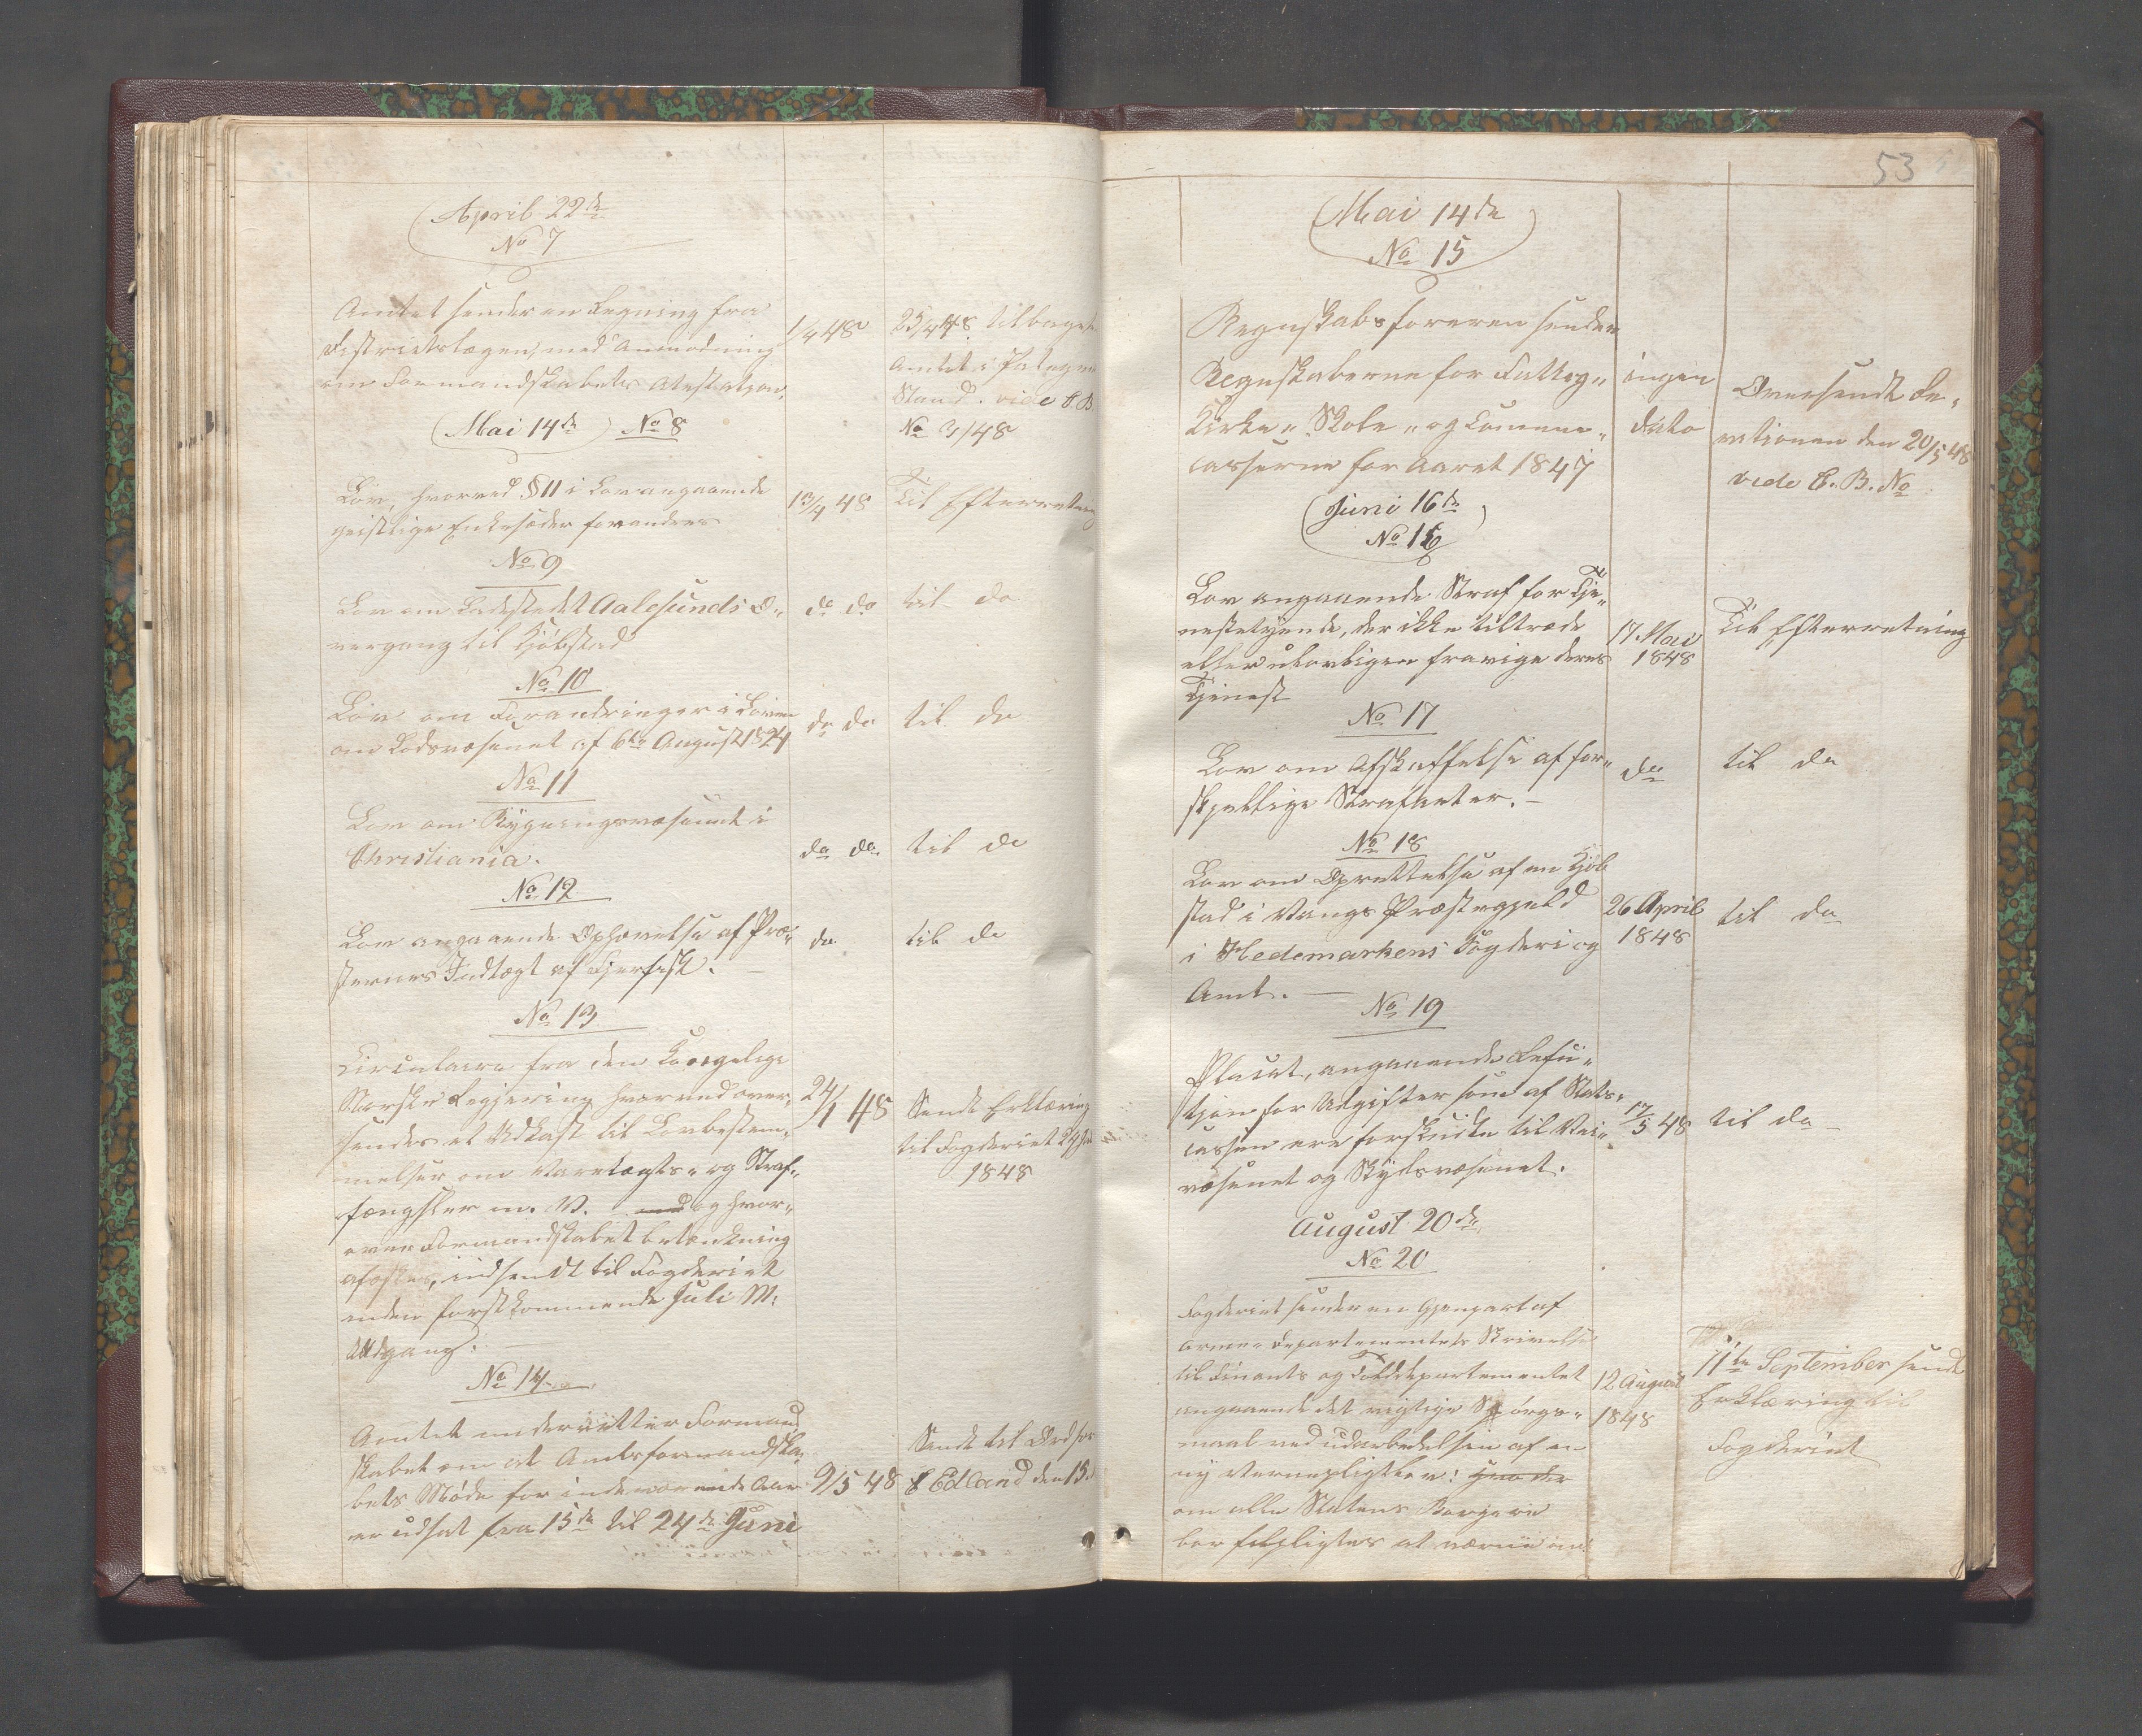 April 22de
No 7
Amtet sender en Regning fra
Districtslægen, med Anmodning
om Formandskabets Atestation.
1/4 48
25/4 48 tilbagesendt
Amtet i Paategnet
Stand. vide C.B.
No 3/48
Mai 14de No 8
Lov, hvorved § 11 i Lov angaaende
geistlige Enkesæder forandres
13/4 48
Til Efterretning
No 9
Lov om Ladestedet Aalesunds O-
vergang til Kjøbstad
do do
til do
No 10
Lov om Forandringer i Loven
om Lodsvæsenet af 6te August 1824
do do
til do
No 11
Lov om Bygningsvæsenet i
Christiania.
do do
til do
No 12
Lov angaaende Ophævelse af Præ-
sternes Indtægt af Kjerfisk.
do
til do
No 13
Circulaire fra den Kongelige
Norske Regjering hvorved over-
sendes et Udkast til Lovbestem-
melser om Varetægts- og Straf-
fængsler m. V. og hvor-
over Formandskabet betænkning
afæskes, indsendt til Fogderiet
inden førstkommende Juli M:
Udgang.
24/1 48
Sendt Erklæring
til Fogderiet
1848
No 14
Amtet underretter Formand
skabet om at Amtsformandska-
bets Møde for indeværende Aar
er udsat fra 15de til 24de Juni
9/5 48
Sendt til Ordfør
E Edland den 15.
53
Mai 14de
No 15
Regnskabsføreren sender
Regnskaberne for Fattig-
Kirke- Skole- og Commune-
casserne for Aaret 1847
ingen
Dato
Oversendt De-
cutionen den 20/5 48
vide C. B. No
Juni 16de
No 16
Lov angaaende Straf for Tje-
nestetyende, der ikke tiltræde
eller ulovligen fravige deres
Tjeneste
17 Mai
1848
Til Efterretning
No 17
Lov om Afskaffelse af for-
skjellige Strafarter.
do
til do
No 18
Lov om Oprettelse af en Kjøb
stad i Vangs Præstegjeld
i Hedemarkens Fogderi og
Amt.
26 April
1848
til do
No 19
Placat, angaaende Refu-
tjon for Udgifter som af Stats-
cassen ere forskudte til Vei-
væsenet og Skydsvæsenet.
17/5 48
til do
August 20de
No 20
Fogderiet sender en Gjenpart af
Arme-Departementets Skrivelse
til Finants og Tolddepartementet
angaaende det vigtige Spørgs-
maal ved udarbeidelsen af en
ny Vernepligtlov: hvorvidt
om alle Statens Borgere
bør forpligtes at værne om
12 August
1848
11te September sendt
Erklæring til
Fogderiet